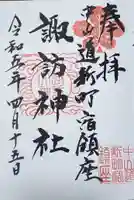 奉拝
中山道新町宿鎮座
諏訪神社
令和五年四月十五日